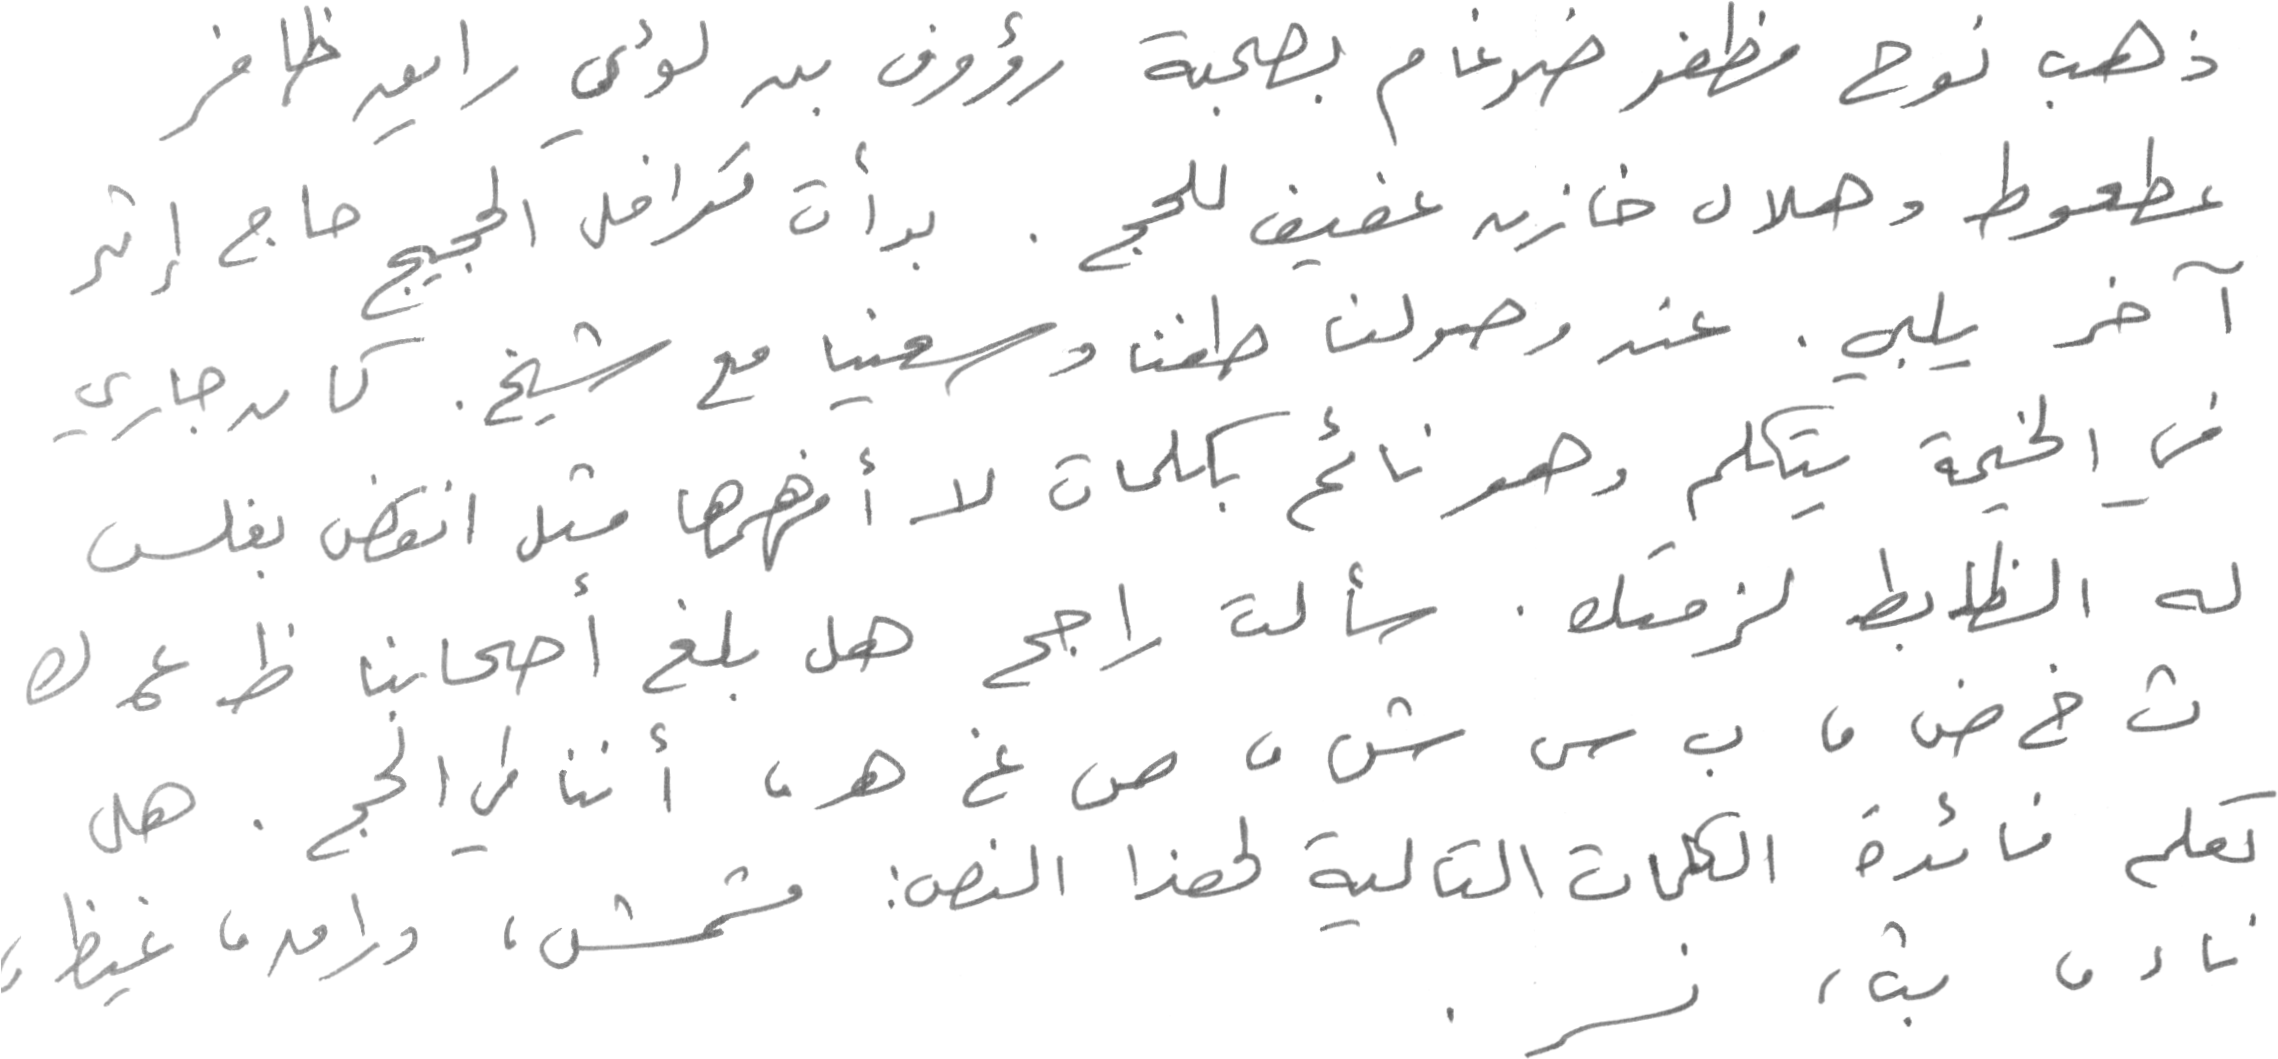 ذهب نوح مظفر ضرغام بصحبة رؤوف بن لؤي رابعين ظافر
عطعوط وهلال خازن عفيف للحج . بدأت قوافل الحجيج حاج إثر
آخر يلبي . عند وصولنا طفنا وسعينا مع شيخ . كان جاري
في الخيمة يتكلم وهو نائم بكلمات لا أفهمها مثل انقض بفلس
له الظابط لزمتك . سألت راجح هل بلغ أصحابنا ظ عم ك
ث خ ض ، ب س ش ، ص غ ه ، أننا في الحج . هل
تعلم فائدة الكلمات التالية لهذا النص: مشمش ، ورامن ، غيظ ،
ناد ، بث ، نسر .